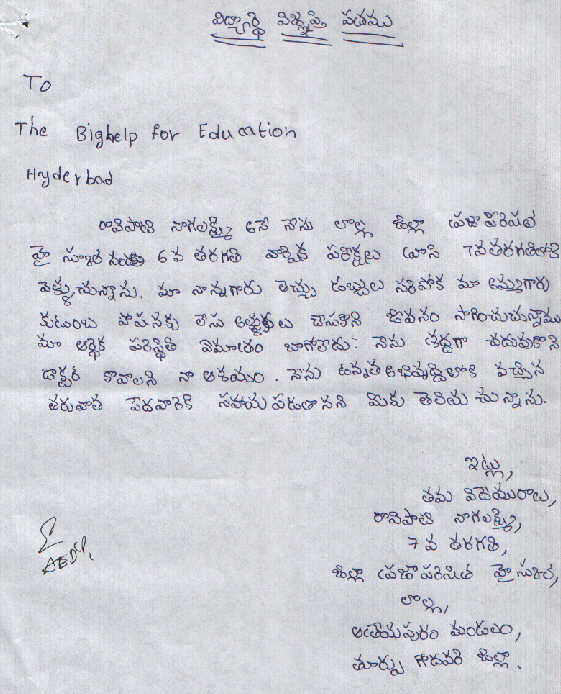 విద్యార్థి విజ్ఞప్తి పత్రము
To
The Bighelp for Education
Hyderbad
రావిపాటి నాగలక్ష్మి అనే నేను లొల్ల జిల్లా ప్రజాపరిషత్
హై స్కూల్ నందు 6వ తరగతి వార్షిక పరీక్షలు వ్రాసి 7వతరగతిలోకి
వెళ్ళుచున్నాను. మా నాన్నగారు తెచ్చు డబ్బులు సరిపోక మా అమ్మగారు
కుటుంబ పోషనకు లేసు అల్లికలు చేసుకుని జీవనం సాగించుచున్నాము
మా ఆర్థిక పరిస్థితి ఏమాత్రం బాగోలేదు. నేను పెద్దగా చదువుకొని
డాక్టర్ కావాలని నా ఆశయం. నేను ఉన్నత అభివృద్ధిలోకి వచ్చిన
తరువాత పేదవారికి సహాయ పడతానని మీకు తెలియచేయుచున్నాను.
ఇట్లు,
తమ విధేయురాలు,
రావిపాటి నాగలక్ష్మి,
7 వ తరగతి,
జిల్లా ప్రజాపరిషత్ హైస్కూల్,
లొల్ల,
ఆత్రేయపురం మండలం,
తూర్పు గోదావరి జిల్లా.